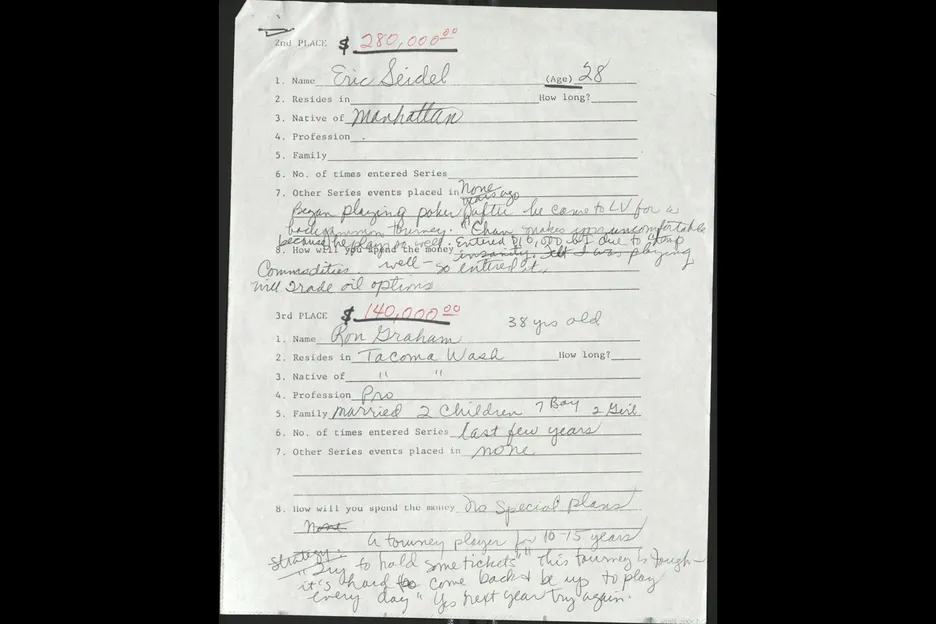 2nd PLACE $ 280,000.00
1. Name Eric Seidel (Age) 28
2. Resides in How long?
3. Native of Manhattan
4. Profession
5. Family
6. No. of times entered Series
7. Other Series events placed in None
years ago
Began playing poker after he came to LV for a
backgammon tourney. "Chan makes you uncomfortable
because he plays so well. Entered $10,000 bi due to "temp
8. How will you spend the money insanity. I was playing
Commodities. well - so entered it.
will trade oil options
3rd PLACE $ 140,000.00
38 yrs old
1. Name Ron Graham
2. Resides in Tacoma Wash How long?
3. Native of " "
4. Profession Pro
5. Family married 2 children 7 Boy 2 Girl
6. No. of times entered Series last few years
7. Other Series events placed in none
8. How will you spend the money No Special plans
None
A tourney player for 10-15 years
Strategy:
"Try to hold some tickets" "this tourney is tough -
it's hard to come back & be up to play
every day" Yes next year try again.